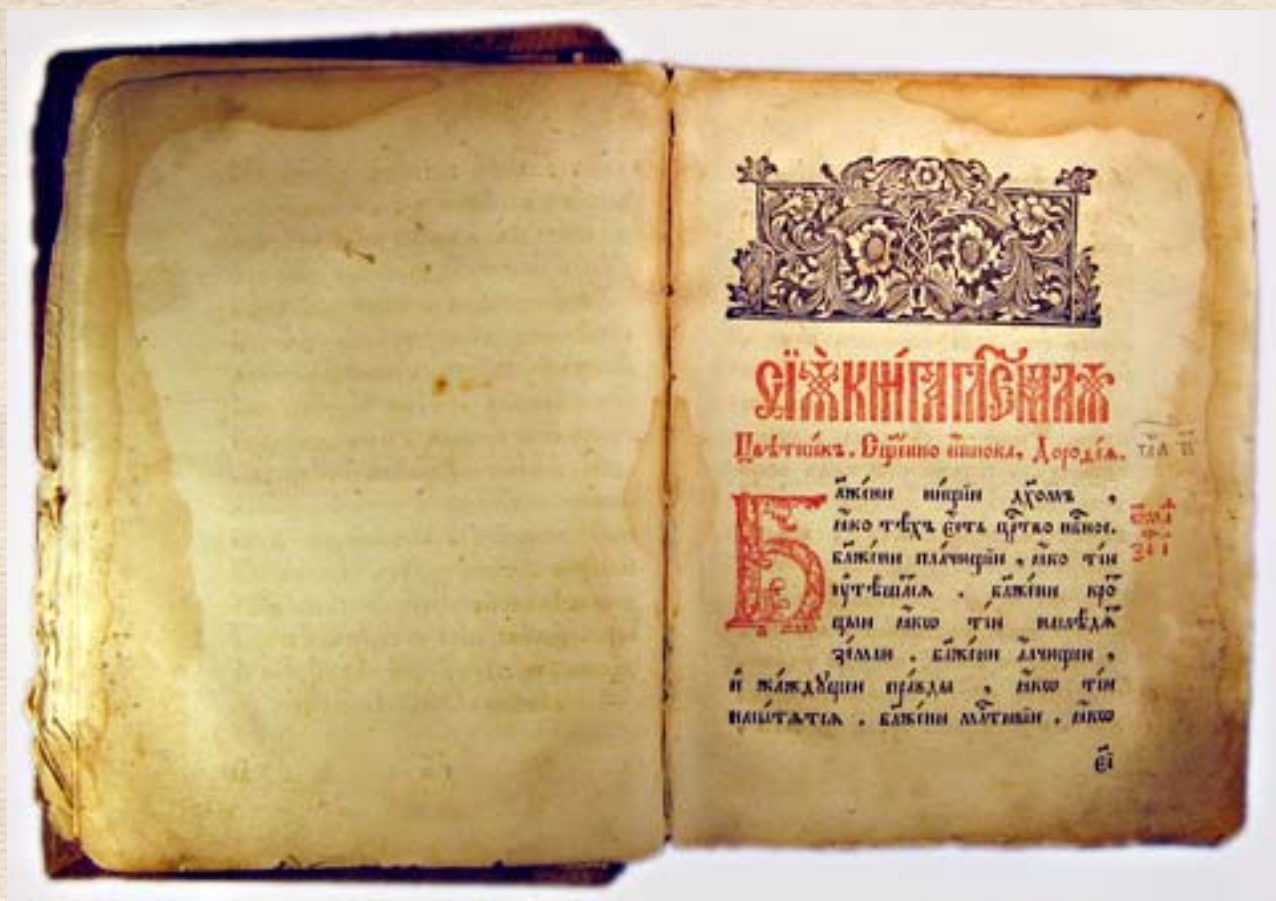 СїѦ КНИ́ГА ГЛЕ́МАѦ
Цвѣтни́къ. Сщ҃е́нно и҆́нока, Дороѳе́ѧ.
Бл҃же́ни ни́щїи дх҃омъ,
ꙗ҆́кѡ тѣ́хъ є҆́сть црⷭ҇тво нбⷭ҇ное.
бл҃же́ни пла́чущїи, ꙗ҆́кѡ ті́и
ᲂу҆тѣ́шатсѧ. бл҃же́ни кро́
цыи ꙗ҆́кѡ ті́и наслѣ́дѧⷮ
зе́млю. бл҃же́ни а҆́лчущїи,
и҆ жа́ждꙋщїи пра́вды, ꙗ҆́кѡ ті́и
насы́тѧтсѧ. бл҃же́ни млⷭ҇тивїи, ꙗ҆́кѡ
є҃і